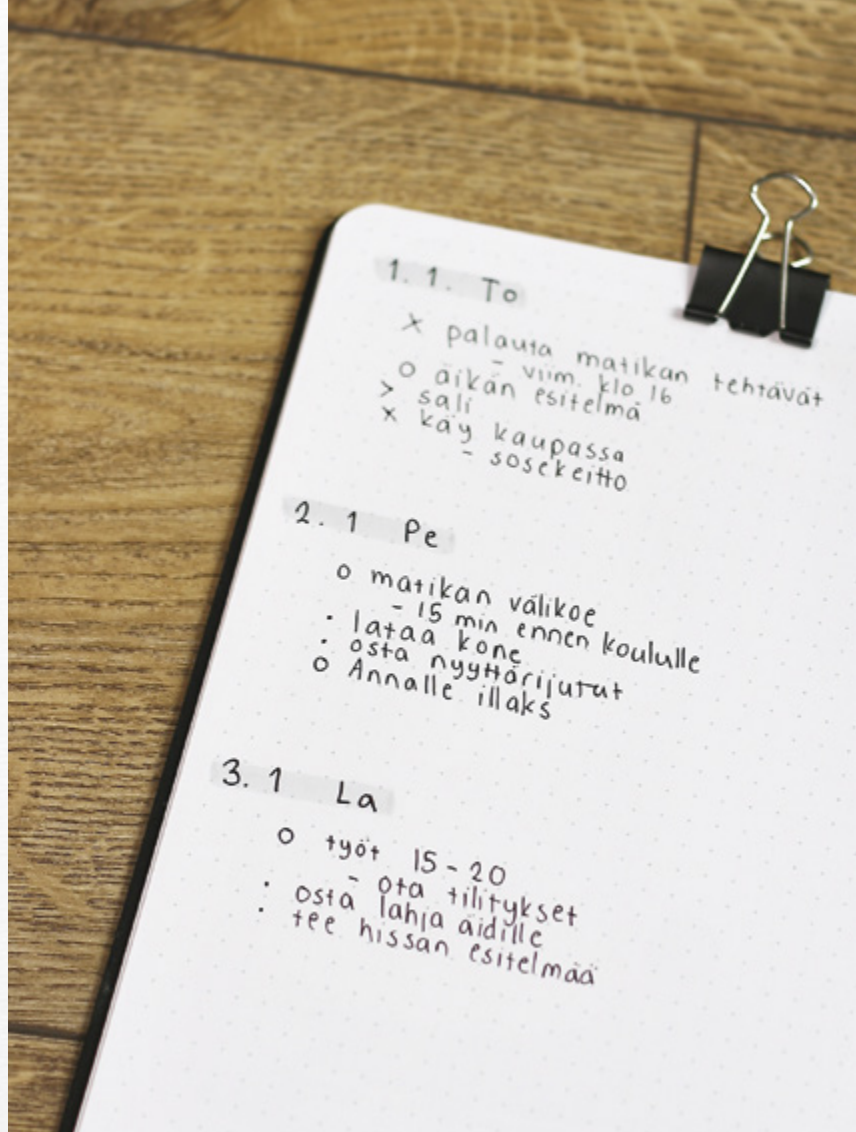 1. 1. To
x palauta matikan tehtävät
- viim. klo 16
o äikän esitelmä
> sali
x käy kaupassa
- sosekeitto
2. 1 Pe
o matikan välikoe
- 15 min ennen koululle
· lataa kone
· osta nyyttärijutut
o Annalle illaks
3. 1 La
o työt 15 - 20
- ota tilitykset
· osta lahja äidille
· tee hissan esitelmää